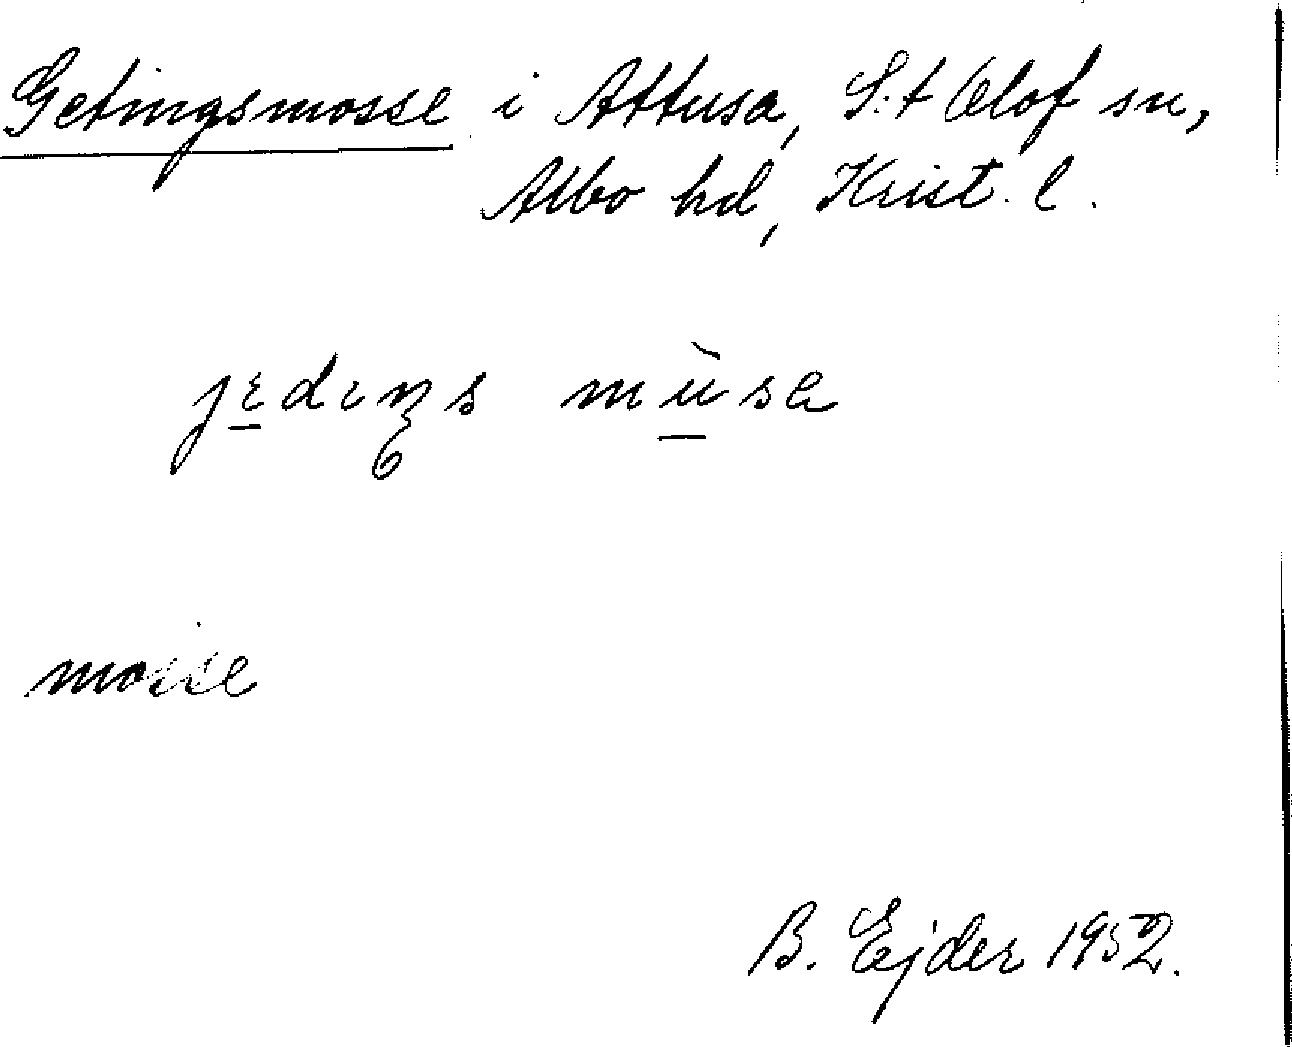 Getingsmosse i Attusa, S:t Olof sn,
Albo hd, Krist. l.
jɛdıŋs mùsa
mosse
B. Ejder 1952.